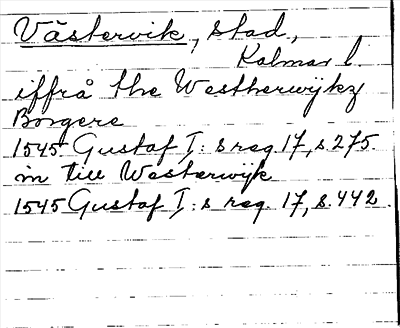 Västervik, stad,
Kalmar l.
iffrå the Westherwijkz
Borgere
1545 Gustaf I:s reg. 17, s 275
in till Westerwijk
1545 Gustaf I:s reg. 17, s. 442.